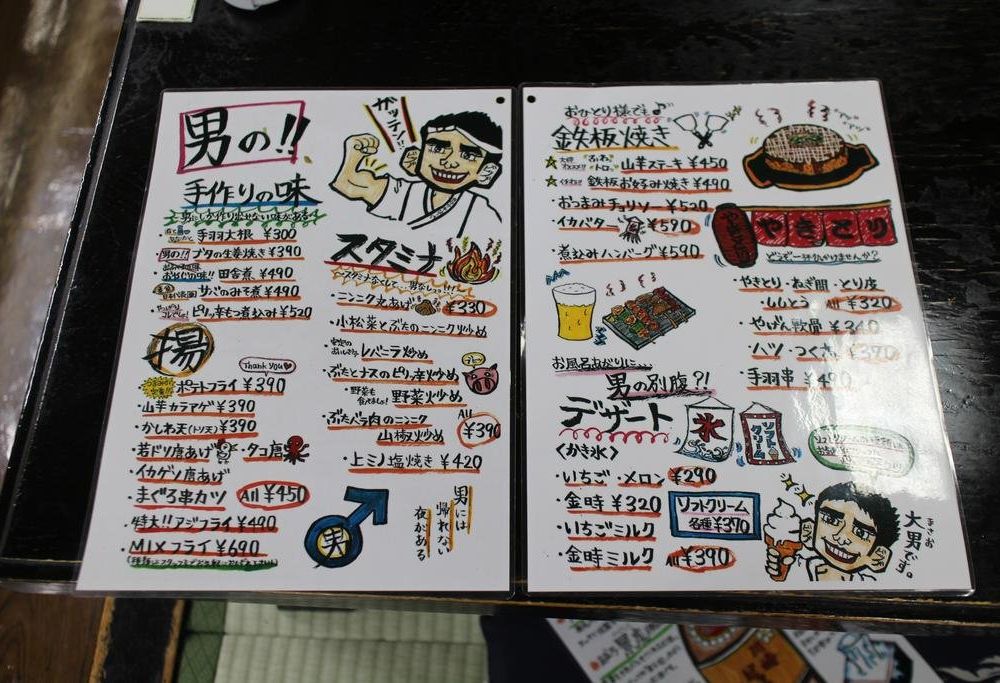 男の!!
ガッテイ!!
手作りの味
男にしか作り出せない味がある
手羽大根 ¥300
男の!! ブタの生姜焼き ¥390
田舎煮 ¥490
サバのみそ煮 ¥490
ピリッ辛もつ煮込み ¥520
揚
Thank you
ポテトフライ ¥390
・山芋カラアゲ ¥390
・かしわ天(トリ天) ¥390
・若ドリ唐あげ ・タコ唐
・イカゲソ唐あげ
・まぐろ串カツ All ¥450
・特大!! アジフライ ¥490
・MIXフライ ¥690
スタミナ
・ニンニク丸あげ ¥330
・小松菜とぶたのニンニク炒め
・レバニラ炒め
・ぶたとナスのピリ辛炒め
・野菜も食べましょ! 野菜炒め
・ぶたバラ肉のニンニク
山椒炒め
All ¥390
・上ミノ塩焼き ¥420
男
男には
帰れない
夜がある
おひとり様でも♪
鉄板焼き
山芋ステーキ ¥450
鉄板お好み焼き ¥490
・おつまみチョリソー ¥520
・イカバター ¥590
・煮込みハンバーグ ¥590
やきとり
やきとり
どうぞ一杯ひっかけませんか?
・やきとり・ねぎ間・とり皮
・ししとう All ¥320
・やげん軟骨 ¥340
・ハツ・つくね ¥370
・手羽串 ¥490
お風呂あがりに…
男の別腹?!
デザート
氷
ソフトクリーム
〈かき氷〉
・いちご・メロン ¥290
・金時 ¥320
・いちごミルク
・金時ミルク All ¥390
ソフトクリーム
各種 ¥370
まさお
大男です。